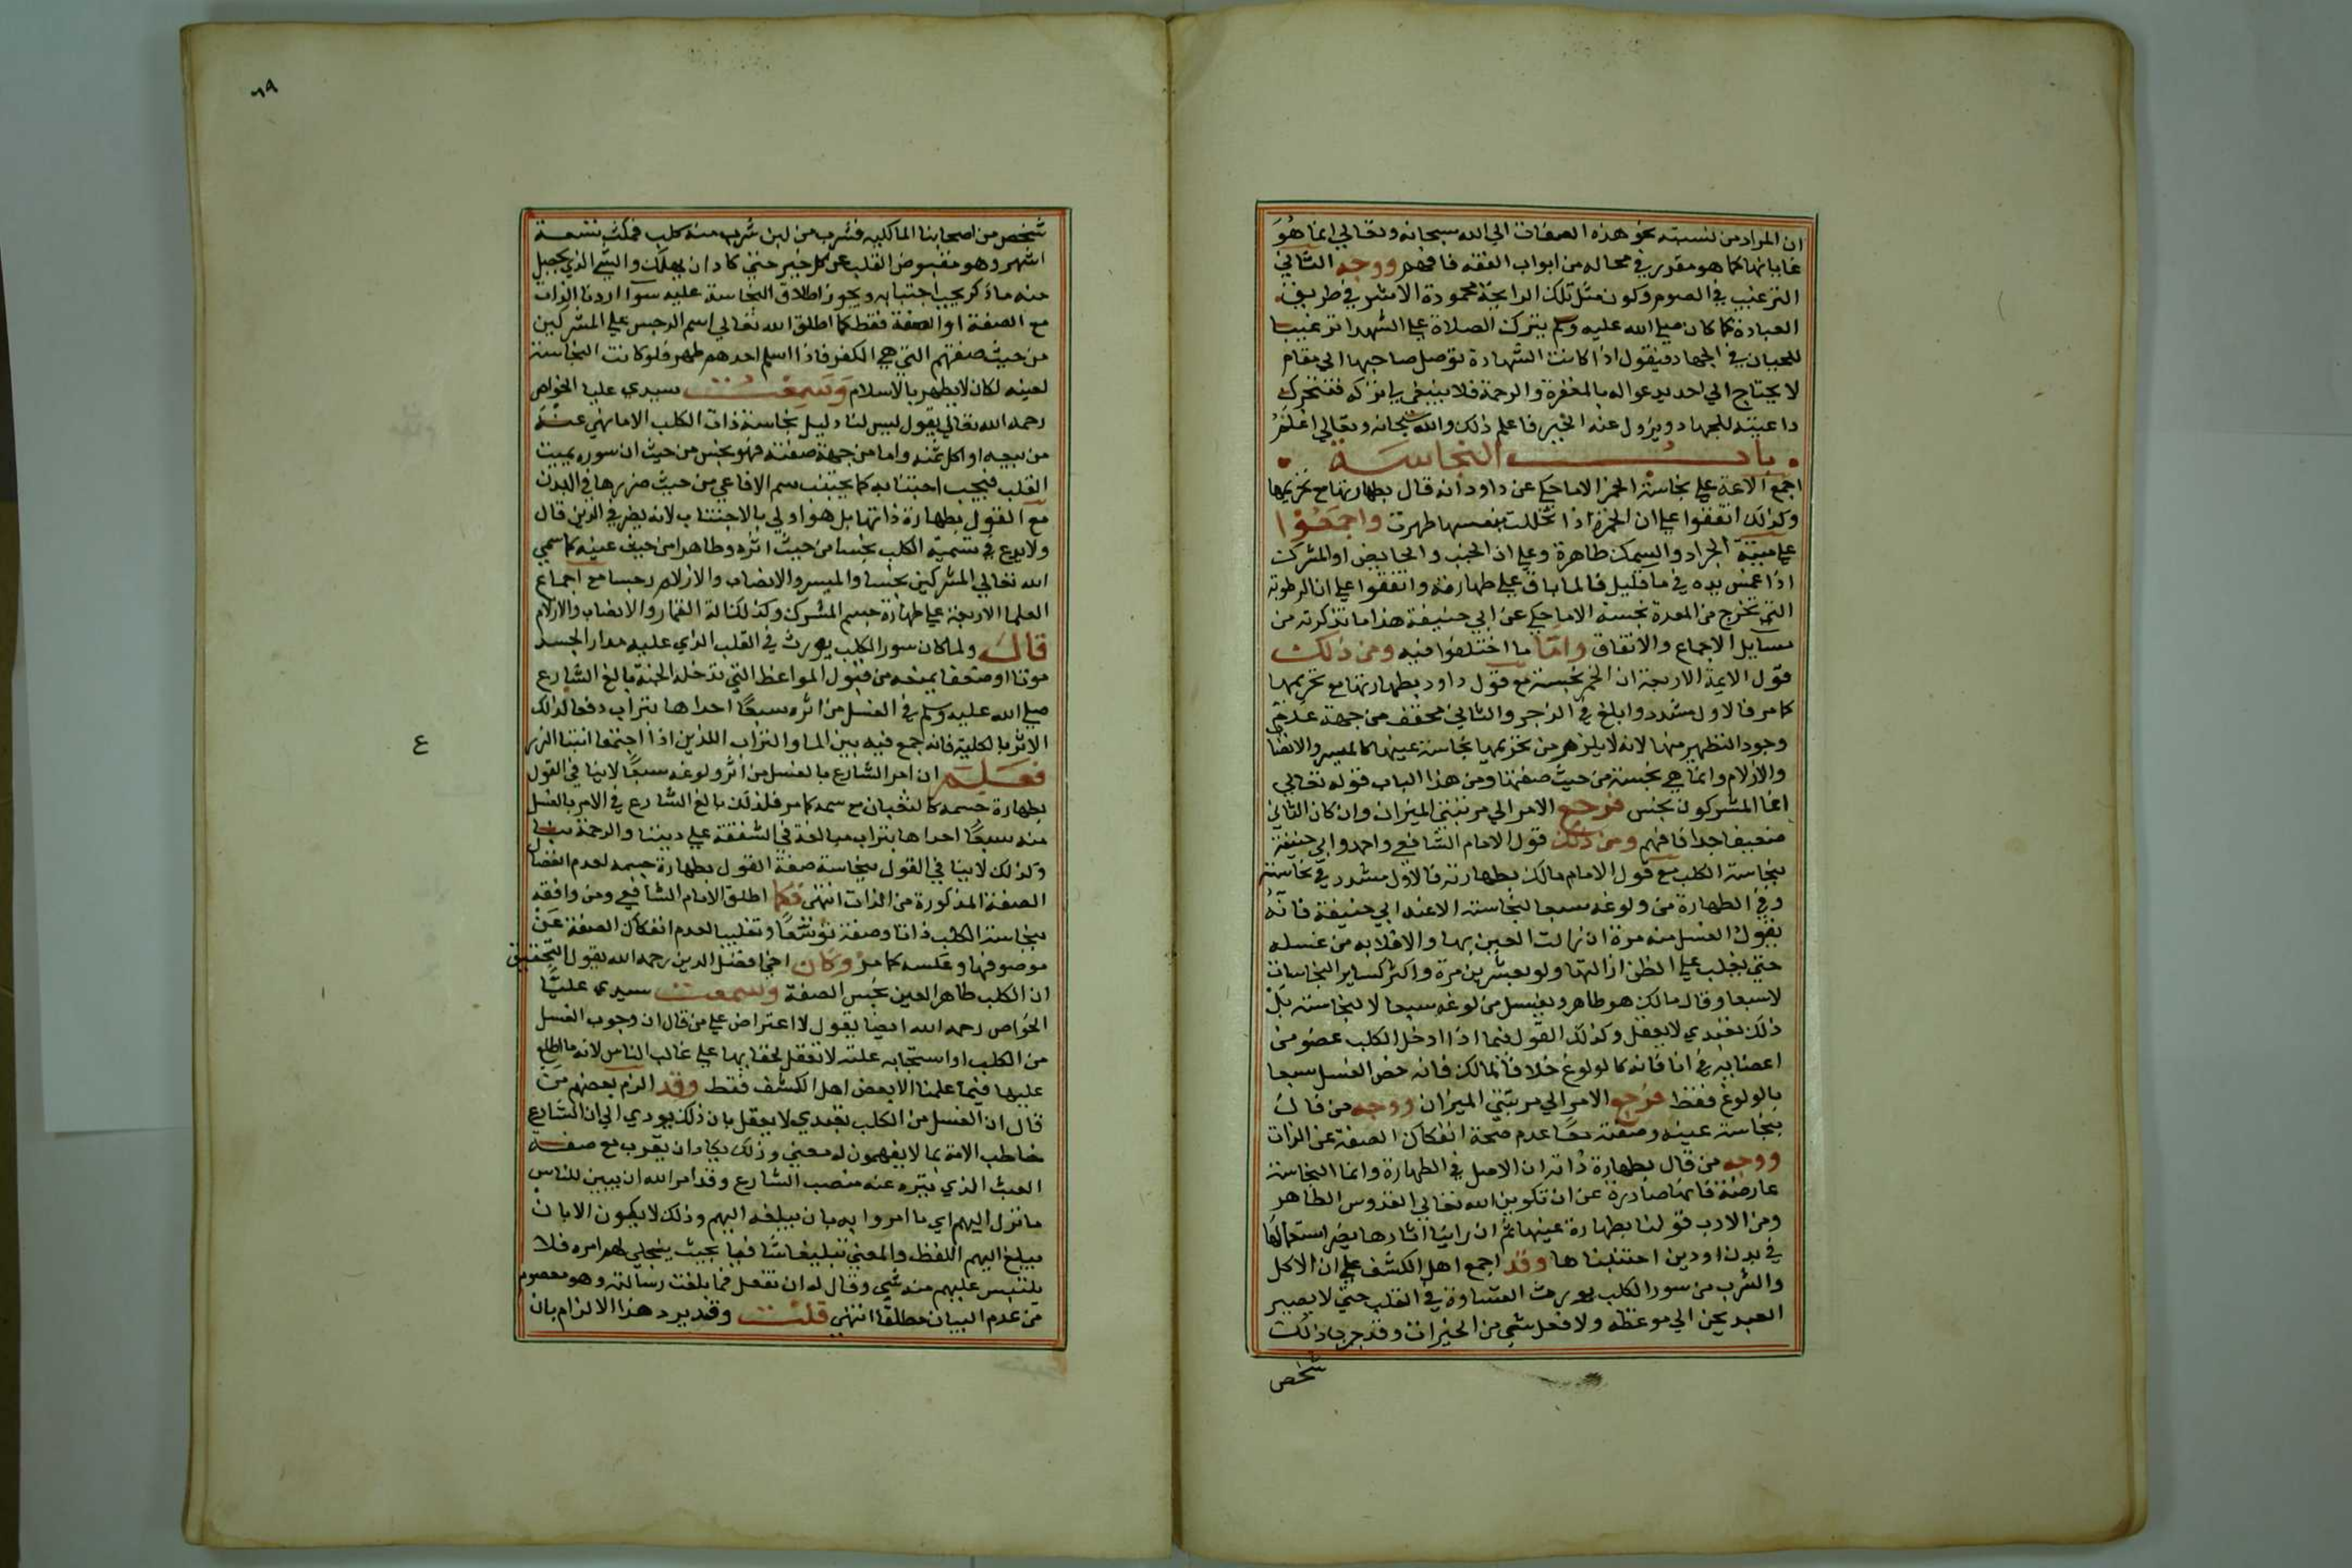 ان المراد من نسبته نحو هذه الصفات الي الله سبحانه وتعالي انما هو
غاياتها كما هو مقدر في محاله من ابواب الفقه فافهم ووجه الثاني
الترغيب في الصوم وكون مثل تلك الرايحة محمودة الاثر في طريق
العبادة كما كان صلي الله عليه وسلم يترك الصلاة علي الشهدا ترغيبا
للجبان في الجهاد فيقول اذا كانت الشهادة توصل صاحبها الي مقام
لا يحتاج الي احد يدعوا له بالمغفرة والرحمة فلا ينبغي لي تركه فتتحرك
داعيته للجهاد ويزول عنه الخير فاعلم ذلك والله سبحانه وتعالي اعلم
باب النجاسة
اجمع الائمة علي نجاسة الخمر الا ما حكي عن داود انه قال بطهارتها مع تحريمها
وكذلك اتفقوا علي ان الخمرة اذا تخللت بنفسها طهرت واجمعوا
علي ميتة الجراد والسمك طاهرة وعلي ان الجنب والحايض او المشرك
اذا غمس يده في ما قليل فالما باق علي طهارته واتفقوا علي ان الرطوبة
التي تخرج من المعدة نجسة الا ما حكي عن ابي حنيفة هذا ما تذكرته من
مسايل الاجماع والاتفاق واما ما اختلفوا فيه ومن ذلك
قول الايمة الاربعة ان الخمر نجسة مع قول داود بطهارتها مع تحريمها
كما مر فالاول مشدد وابلغ في الزجر والثاني مخفف من جهة عدم
وجود التطهير منها لانه لا يلزم من تحريمها نجاسة عينها كالميسر والانصاب
والازلام وانما هي نجسة من حيث صفتها ومن هذا الباب قوله تعالي
انما المشركون نجس فرجع الامر الي مرتبتي الميزان وان كان الثاني
ضعيفا جدا فافهم ومن ذلك قول الامام الشافعي واحمد وابي حنيفة
بنجاسة الكلب مع قول الامام مالك بطهارته فالاول مشدد في نجاسته
وفي الطهارة من ولوغه سبعا لنجاسته الا عند ابي حنيفة فانه
يقول الغسل منه مرة ان زالت العين بها والا فلا بد من غسله
حتي يغلب علي الظن ازالتها ولو بعشرين مرة واكثر كساير النجاسات
لا سبعا وقال مالك هو طاهر ويغسل من لوغه سبعا لا لنجاسته بل
ذلك تعبدي لا يعقل وكذلك القول فيما اذا ادخل الكلب عضو من
اعضايه في انا فانه كالولوغ خلافا لمالك فانه خص الغسل سبعا
بالولوغ فقط فرجع الامر الي مرتبتي الميزان ووجه من قال
بنجاسة عينه وصفته معا عدم صحة انفكاك الصفة عن الذات
ووجه من قال بطهارة ذاته ان الاصل في الطهارة وانما النجاسة
عارضة فانها صادرة عن ان تكوين الله تعالي القدوس الطاهر
ومن الادب قولنا بطهارة عينها ثم ان راينا اثارها يضر استعمالها
في بدن او دين اجتنبناها وقد اجمع اهل الكشف علي ان الاكل
والشرب من سور الكلب يورث القساوة في القلب حتي لا يصير
العبد يحن الي موعظة ولا فعل شي من الخيرات وقد جرب ذلك
شخص
٦٩
شخص من اصحابنا المالكية فشرب من لبن شرب منه كلب فمكث تسعة
اشهر وهو مقبوض القلب عن كل خير حتي كاد ان يهلك والشي الذي يحصل
منه ما ذكر يجب اجتنابه ويجوز اطلاق النجاسة عليه سوا اردنا الذات
مع الصفة او الصفة فقط كما اطلق الله تعالي اسم الرجس علي المشركين
من حيث صفتهم التي هي الكفر فاذا اسلم احدهم طهر فلو كانت النجاسة
لعينه لكان لا يطهر بالاسلام وسمعت سيدي عليا الخواص
رحمه الله تعالي يقول ليس لنا دليل نجاسة ذات الكلب الا ما نهي عنه
من بيعه او اكل ثمنه واما من جهة صفته فهو نجس من حيث ان سوره يميت
القلب فيجب اجتنابه كما يجتنب سم الافاعي من حيث ضررها في البدن
مع القول بطهارة ذاتها بل هو اولي بالاجتناب لانه يضر في الدين قال
ولا بدع في تسمية الكلب نجسا من حيث اثره وطاهرا من حيث عينه كما سمي
الله تعالي المشركين نجسا والميسر والانصاب والازلام رجسا مع اجماع
العلما الاربعة علي طهارة جسم المشرك وكذلك الة القمار والانصاب والازلام
قال ولما كان سور الكلب يورث في القلب الذي عليه مدار الجسد
موتا او ضعفا يمنعه من قبول المواعظ التي تدخله الجنة بالغ الشارع
صلي الله عليه وسلم في الغسل من اثره سبعا احداها بتراب دفعا لذلك
الاثر بالكلية فانه جمع فيه بين الما والتراب اللذين اذا اجتمعا انبتا الزرع
فعلم ان امر الشارع بالغسل من اثر ولوغه سبعا لا ينافي القول
بطهارة جسمه كالثعبان مع سمه كما مر فلذلك بالغ الشارع في الامر بالغسل
منه سبعا احداها بتراب مبالغة في الشفقة علي ديننا والرحمة بنا
وكذلك لا ينافي القول بنجاسة صفة القول بطهارة جسمه لعدم انفصال
الصفة المذكورة من الذات انتهي فكما اطلق الامام الشافعي ومن وافقه
بنجاسة الكلب ذاتا وصفة توسعا وتغليبا لعدم انفكاك الصفة عن
موصوفها وعكسه كما مر وكان اخي افضل الدين رحمه الله يقول التحقيق
ان الكلب طاهر العين نجس الصفة وسمعت سيدي عليا
الخواص رحمه الله ايضا يقول لا اعتراض علي من قال ان وجوب الغسل
من الكلب او استحبابه علته لا تعقل لخفايها علي غالب الناس لانه ما اطلع
عليها فيما علمنا الا بعض اهل الكشف فقط وقد الزم بعضهم من
قال ان الغسل من الكلب تعبدي لا يعقل بان ذلك يودي الي ان الشارع
خاطب الامة بما لا يفهمون له معني وذلك يكاد ان يقرب مع صفه
العبث الذي ينزه عنه منصب الشارع وقد امر الله ان يبين للناس
ما نزل اليهم اي ما امروا به بان يبلغه اليهم وذلك لا يكون الا بان
يبلغ اليهم اللفظ والمعني تبليغا شافيا بحيث ينجلي لهم امره فلا
يلتبس عليهم منه شي وقال له ان تفعل فما بلغت رسالته وهو معصوم
من عدم البيان مطلقا انتهي قلت وقد يرد هذا الالزام بان
ع